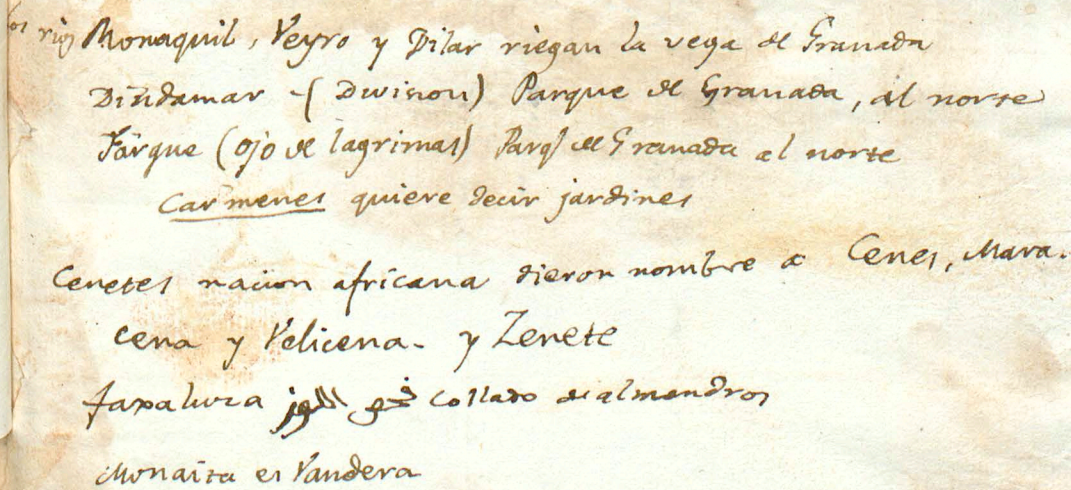 los rios Monaquil, Veyro y Dilar riegan la vega de Granada
Dindamar - (Division) Parque de Granada, al norte
Fargue (ojo de lagrimas) Parq^e de Granada al norte
Carmenes quiere decir jardines
Cenetes nacion africana dieron nombre a Cenes, Mara-
cena y Velicena - y Zenete
faxaluza فحص اللوز collado de almendros
Monaita es Vandera